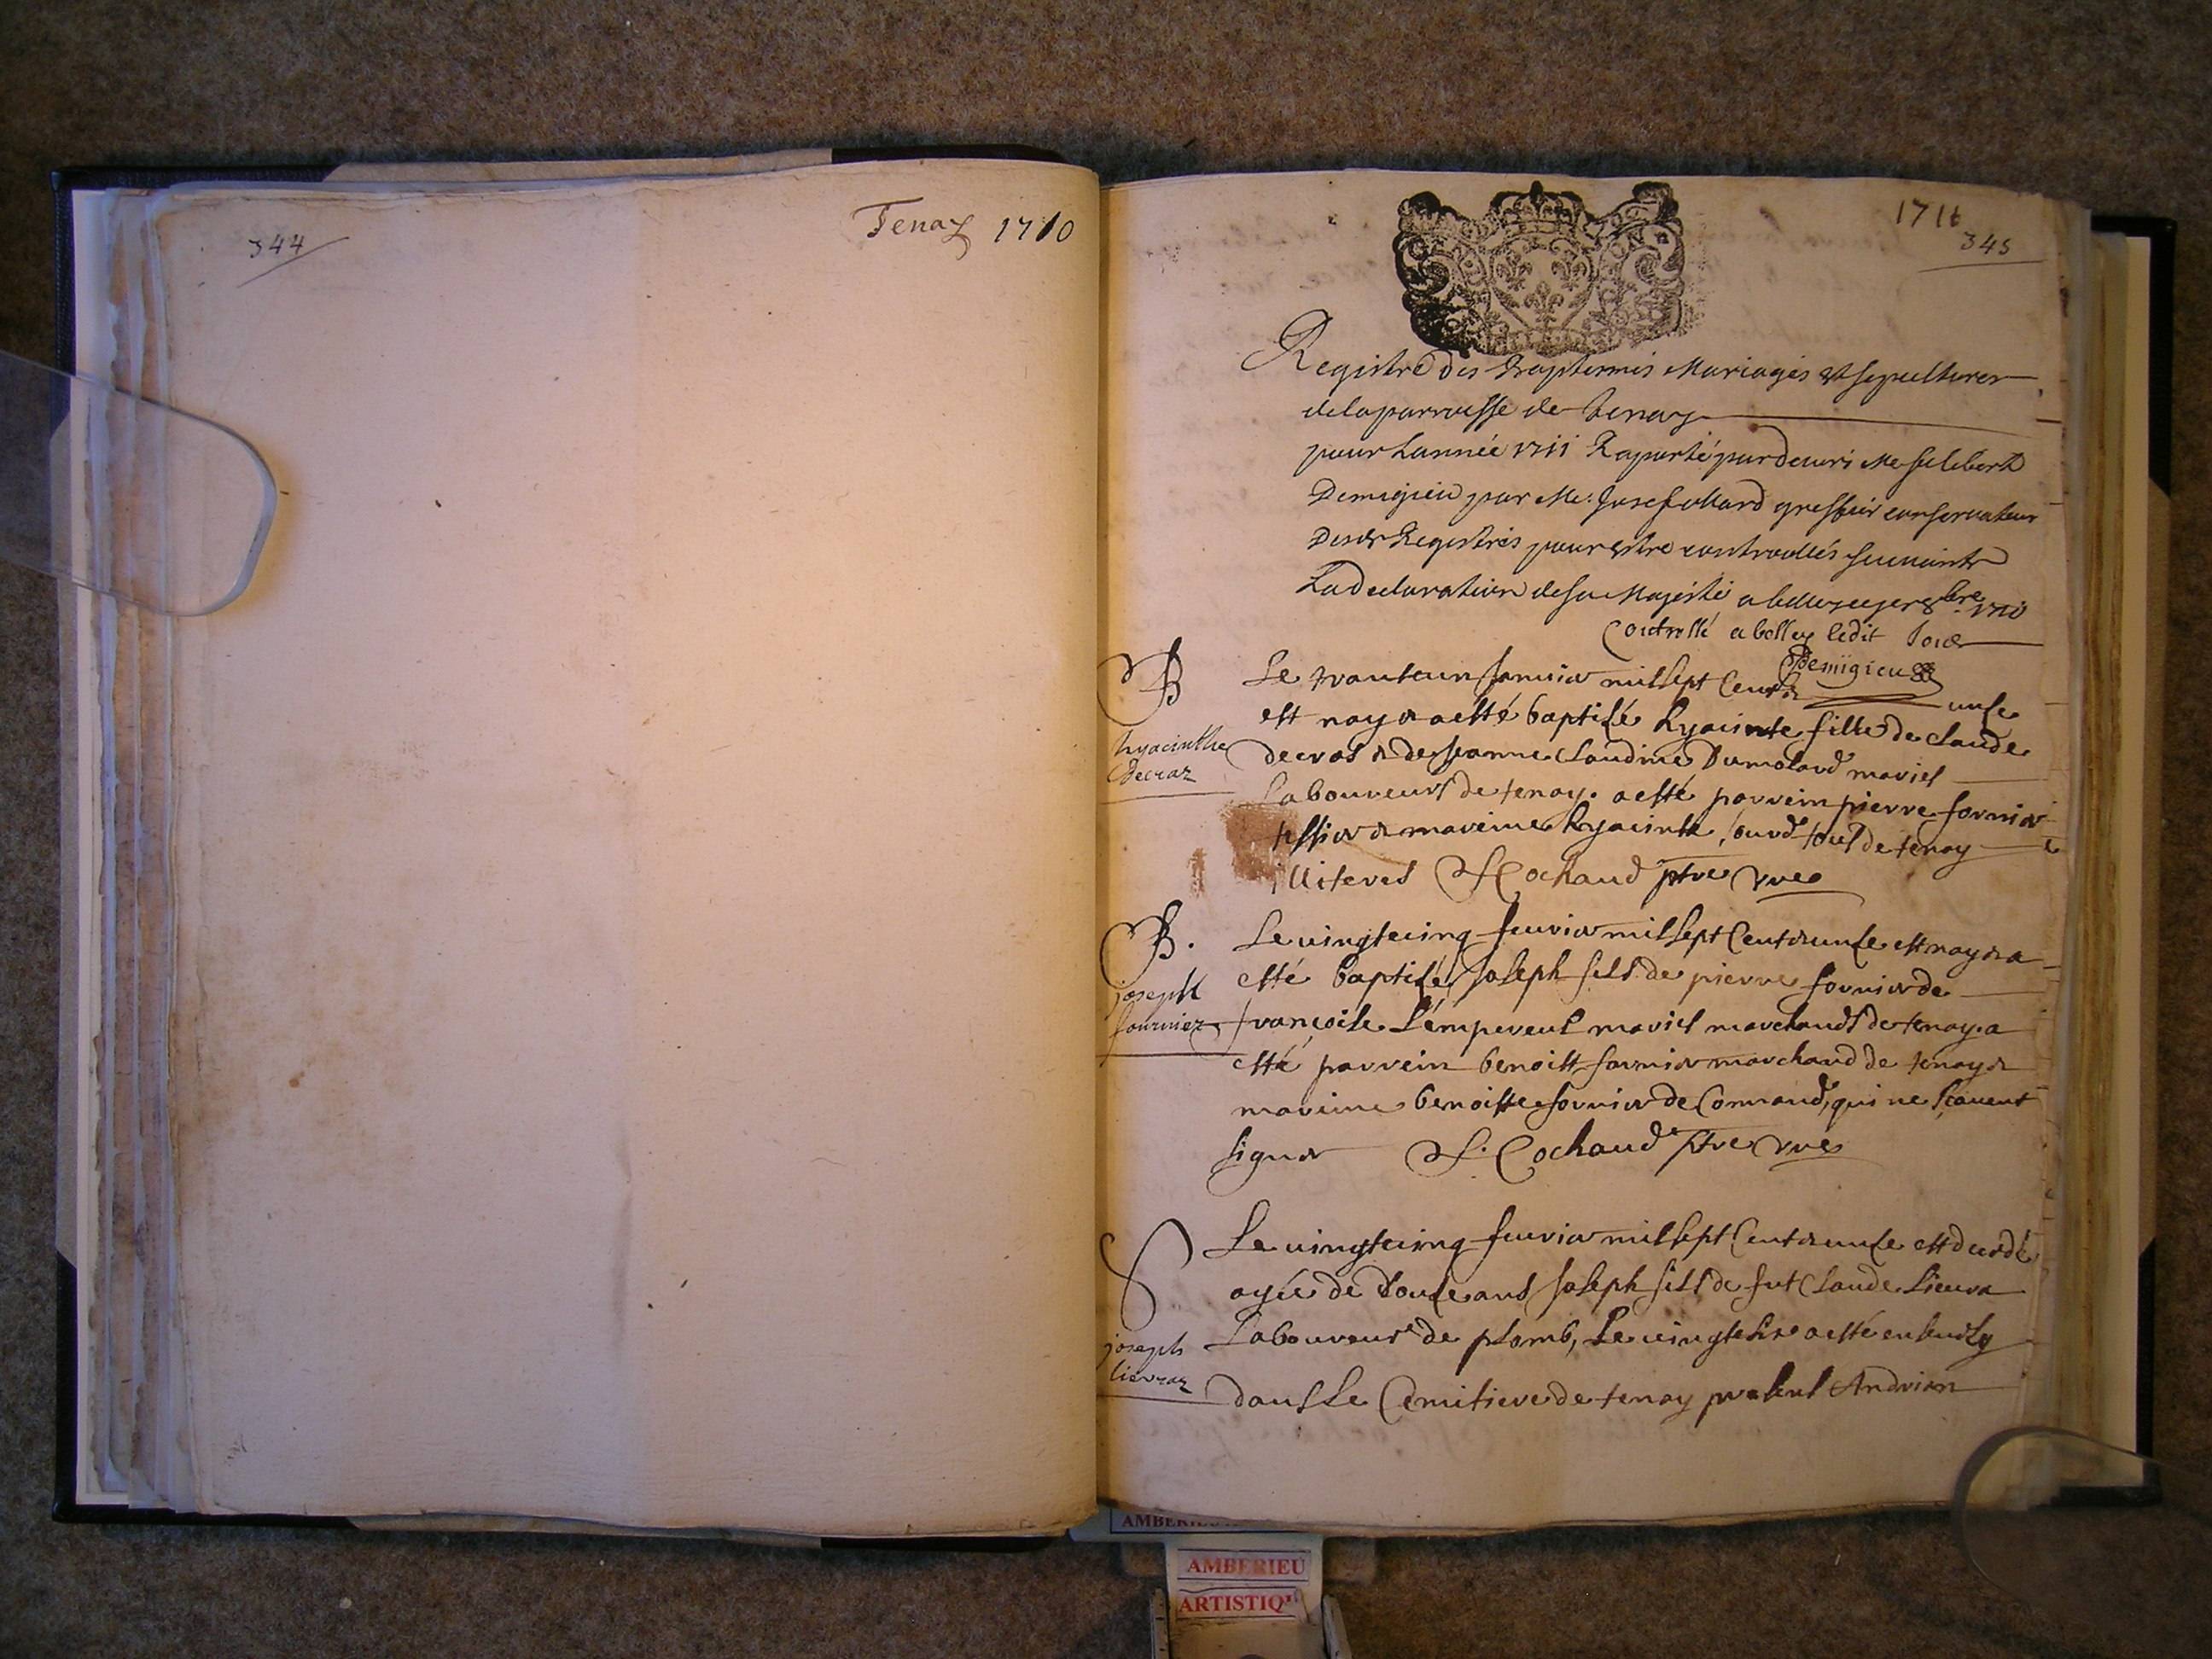 344
Tenay 1710
1711
345
Registre des Baptesmes Mariages et sepultures
de la parroisse de Tenay
pour L'année 1711 Raporté pardevers Me
Demigieu par Me. Josef greffier conservateur
Des Registres pour estre controollés suivant
La Declaration de sa Majesté a belley 1710
Controllé a belley ledit Jour
Demigieu
B
hyacinthe
decraz
Le janvier mil sept Cent & unse
est nay & a esté baptisé hyacinte fille de claude
decras & de Jeanne Claudine Dumolard mariés
Laboureurs de tenay. a esté parrein pierre fornier
& mareine hyacinte tous de tenay
illiterés Cochaud ptre
B.
joseph
fournier
Le vingt cinq feuvrier mil sept Cent & unse est nay & a
esté baptisé Joseph fils de pierre fornier de
françoise L'empereur mariés marchands de tenay. a
esté parrein benoist fornier marchand de tenay &
mareine benoiste fornier de Conrand, qui ne sçavent
signer Cochaud Ptre
S
joseph
lievraz
Le vingt cinq feuvrier mil sept Cent & unse est decedé
agée de douse ans Joseph fils de fut Claude Lieura
Laboureur de plomb, Le vingt sise a esté ensevely
dans Le Cemitiere de tenay present Andrien
AMBERIEU
ARTISTIQ